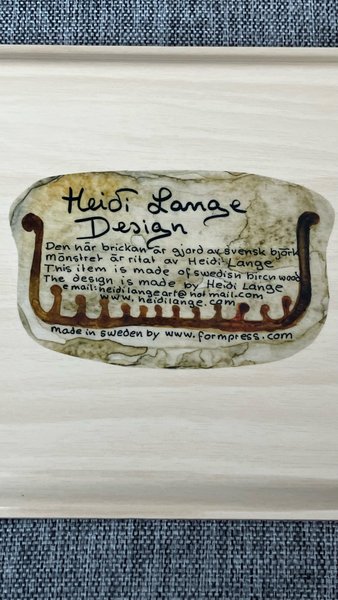 Heidi Lange
Design
Den här brickan är gjord av svensk björk
mönstret är ritat av Heidi Lange
This item is made of swedish birch wood
The design is made by Heidi Lange
email: heidilangeart@hotmail.com
www.heidilange.com
made in sweden by www.formpress.com